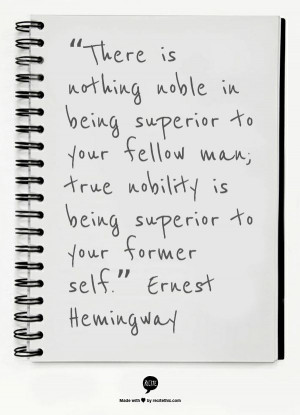 “There is
nothing noble in
being superior to
your fellow man;
true nobility is
being superior to
your former
self.” Ernest
Hemingway
RECITE
Made with ♥ by recitethis.com